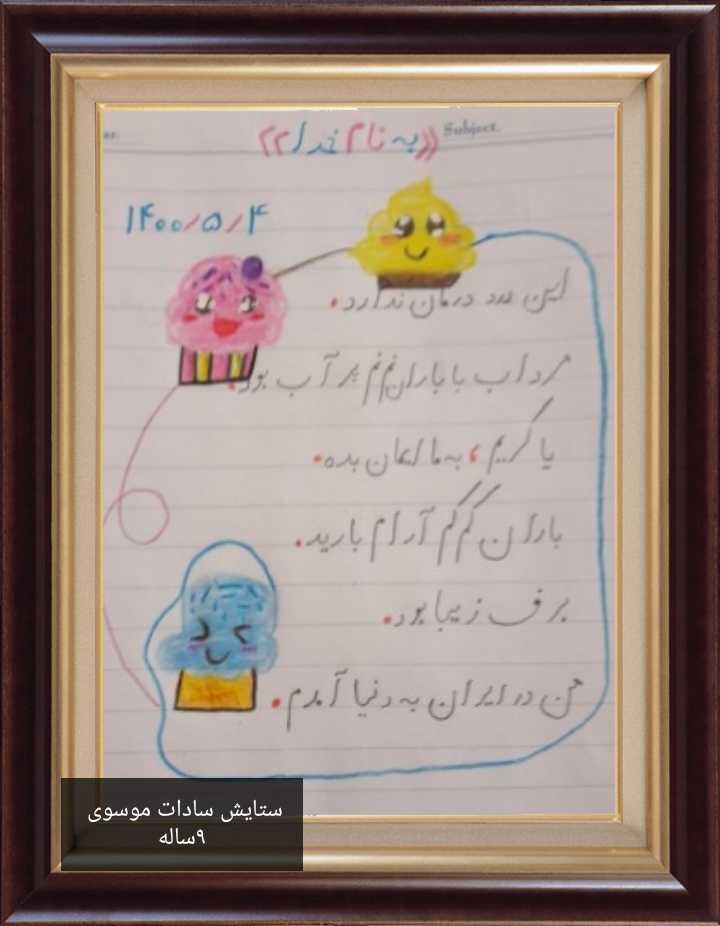 Subject.
«به نام خدا»
۱۴۰۰/۵/۴
این درد درمان ندارد.
مرداب با باران نم نم پر آب بود.
یا کریم، به ما ایمان بده.
باران کم کم آرام بارید.
برف زیبا بود.
من در ایران به دنیا آمدم.
ستایش سادات موسوی
۹ساله